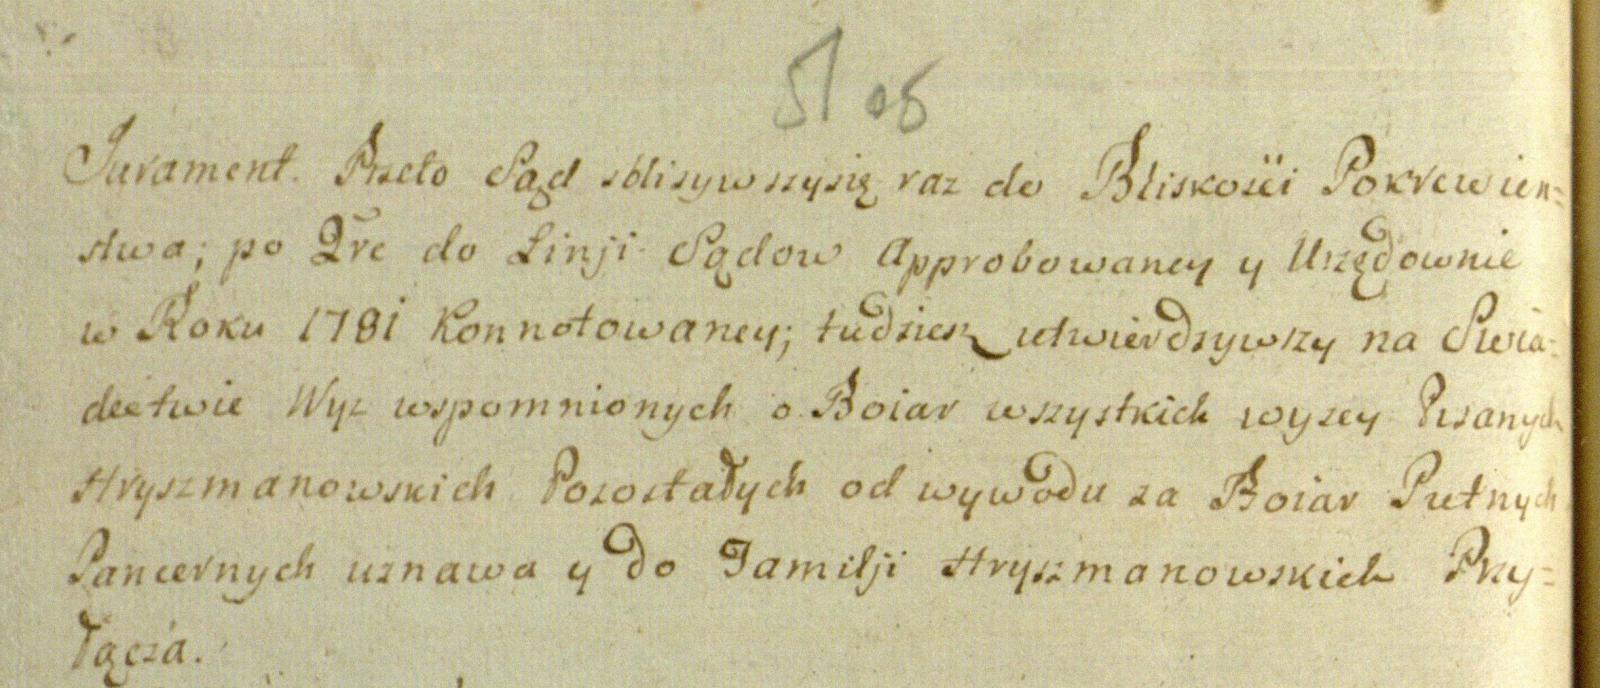 51 08
Jurament. Przeto Sąd zblizywszysię raz do Bliskości Pokrewien=
stwa; po 2re do Linji Sądow Approbowaney y Urzędownie
w Roku 1781 Konnotowaney; tudziesz utwierdzywszy na Swia=
dectwie Wyz wspomnionych o Boiar wszystkich wyzey Pisanych
Hryszmanowskich Pozostałych od wywodu za Boiar Putnych
Pancernych uznawa y do Familji Hryszmanowskich Przy=
łącza.